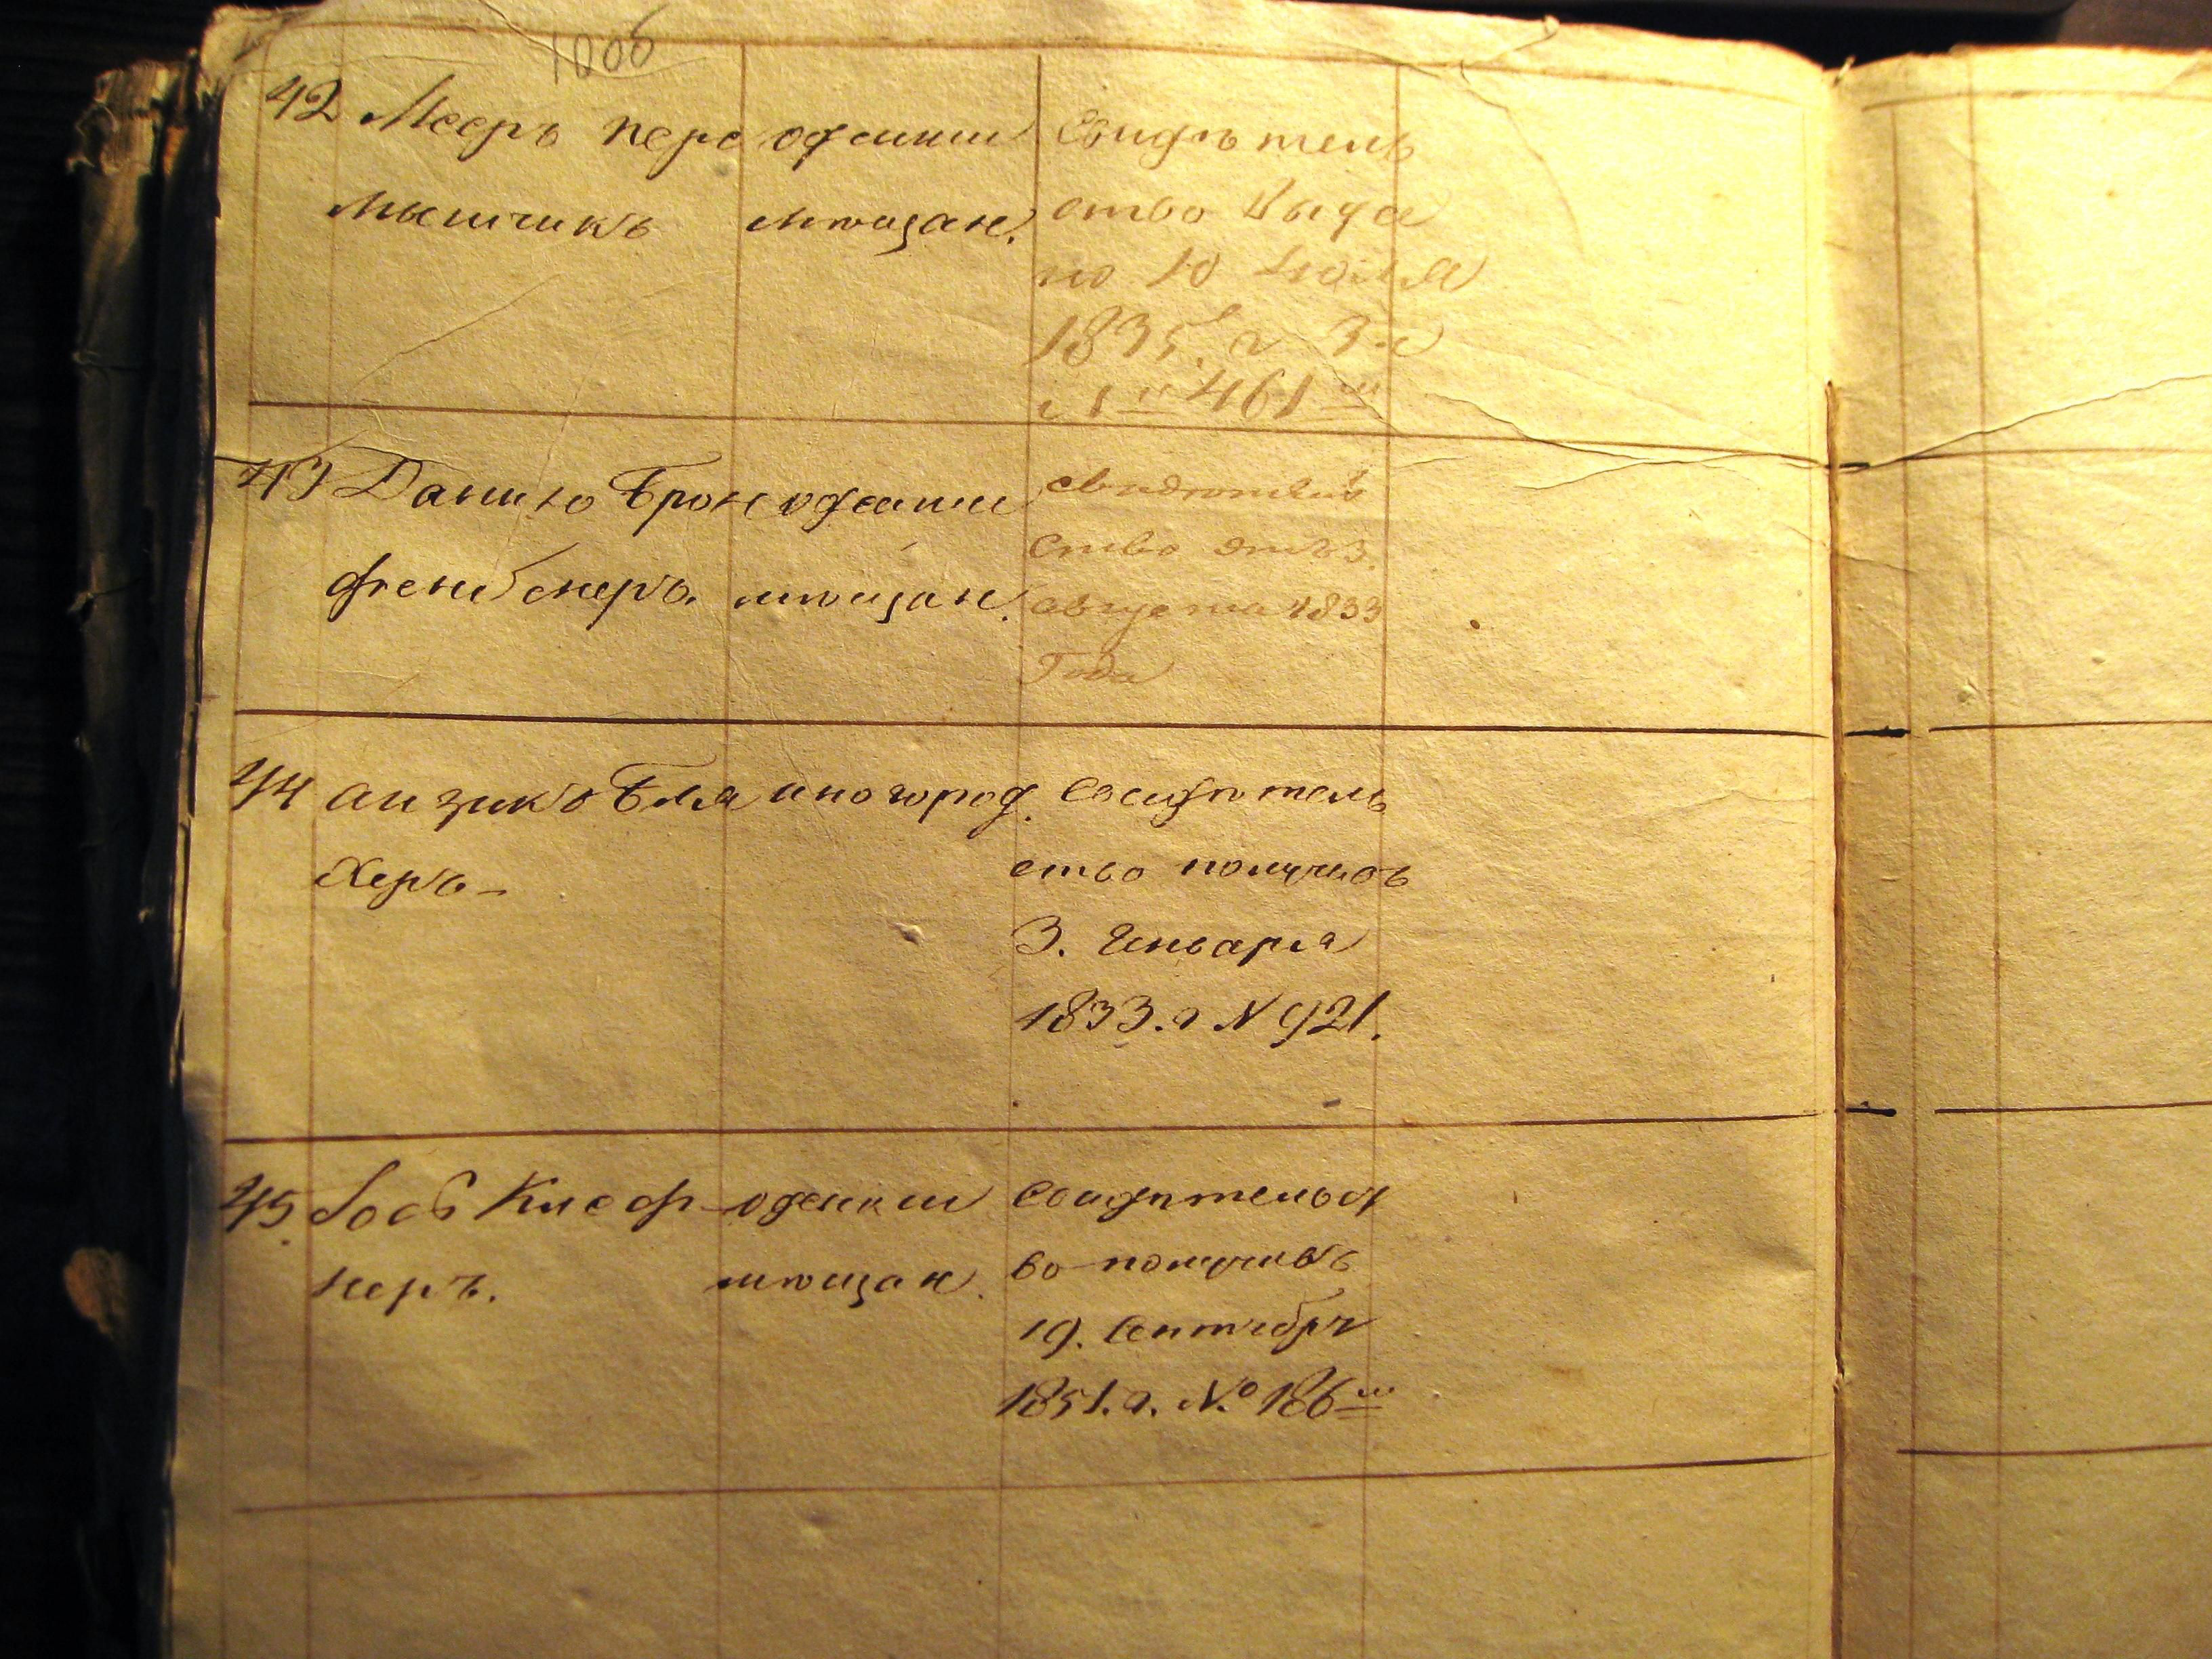 100б
42 Мееръ Пере
мышчикъ
одескии
мѣщан.
Свидѣтель
ство выда
но 10 Іюля
1835. г За
№ 461
43 Данило Брон
фенбенеръ.
одески
мѣщан.
свидѣтель
ство отъ 3.
августа 1833
Года
44 Аизикъ Бля
херъ-
иногород.
Свидѣтель
ство получилъ
3. Генваря
1833. г N 921.
45. Іосъ Клеф-
неръ.
одески
мѣщан.
Свидѣтельст
во получилъ
19. Сентября
1851. г. № 186